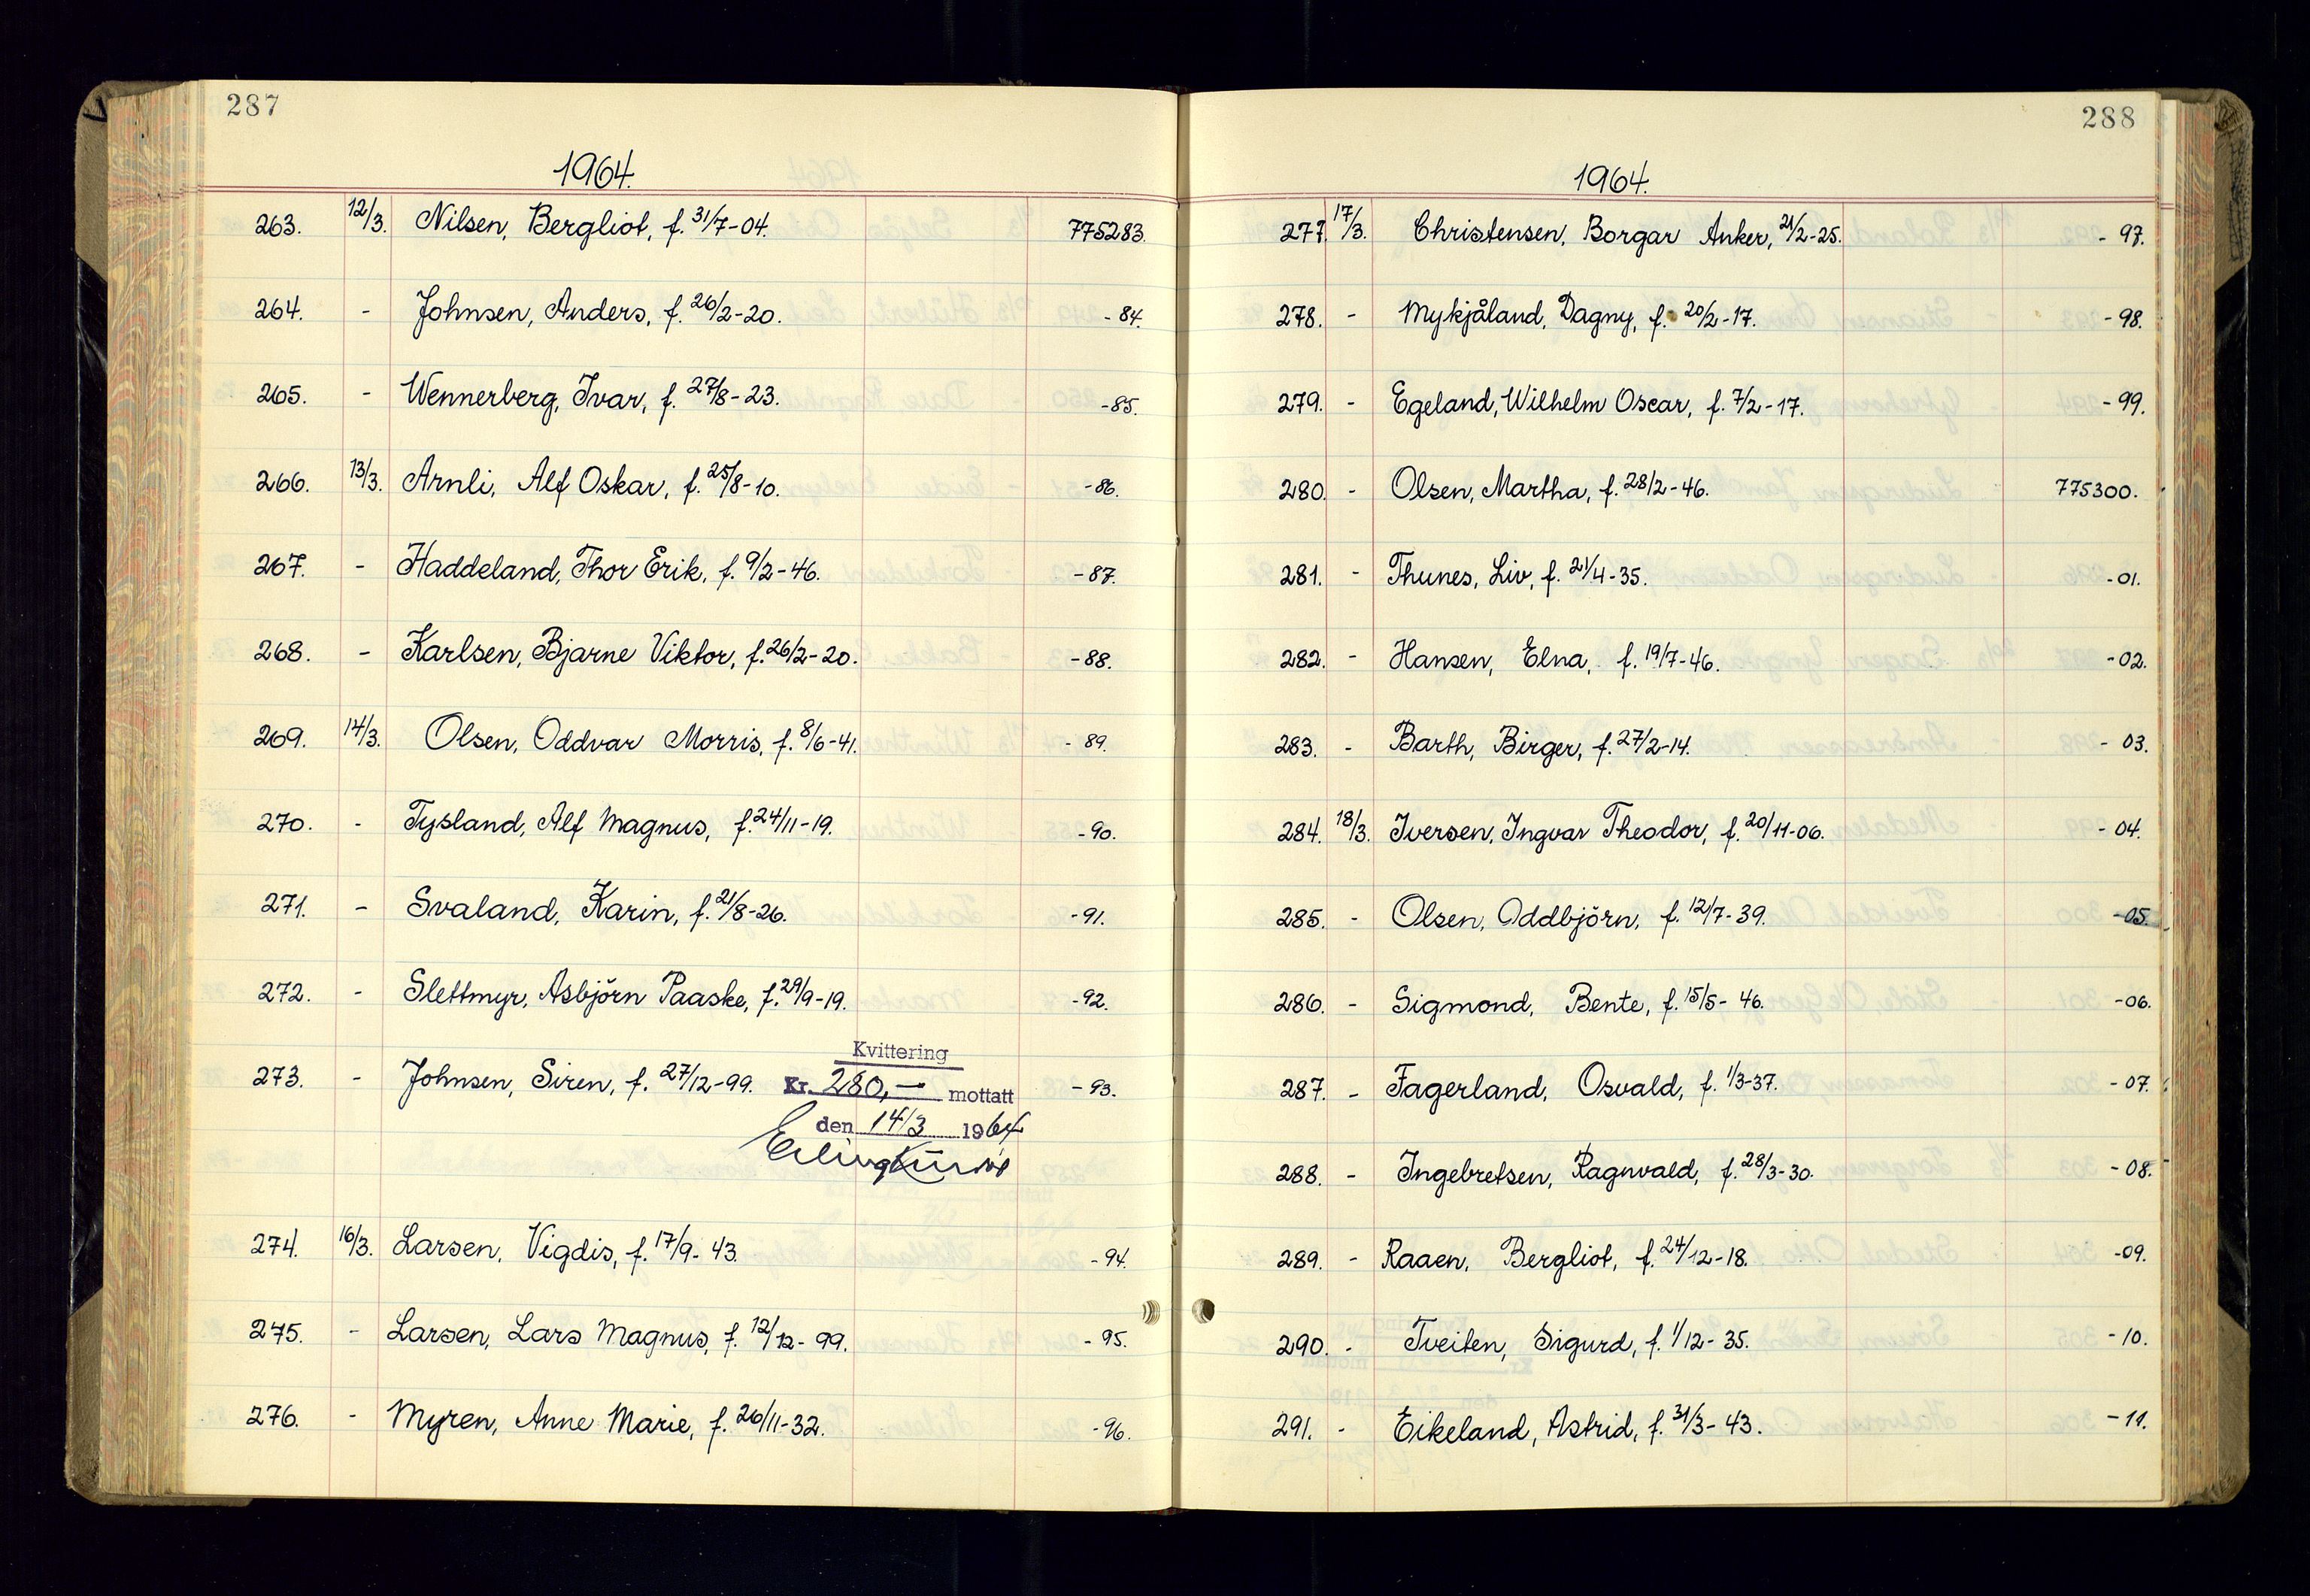 287
1964.
263. 12/3. Nilsen, Bergliot, f. 31/7-04. 775283.
264. - Johnsen, Anders, f. 26/2-20. -84.
265. - Wennerberg, Ivar, f. 27/8-23. -85.
266. 13/3. Arnli, Alf Oskar, f. 25/8-10. -86.
267. - Haddeland, Thor Erik, f. 9/2-46. -87.
268. - Karlsen, Bjarne Viktor, f. 26/2-20. -88.
269. 14/3. Olsen, Oddvar Morris, f. 8/6-41. -89.
270. - Tysland, Alf Magnus, f. 24/11-19. -90.
271. - Svaland, Karin, f. 21/8-26. -91.
272. - Slettmyr, Asbjörn Paaske, f. 29/9-19. -92.
Kvittering
273. - Johnsen, Siren, f. 27/12-99. Kr. 280,- mottatt -93.
den 14/3 1964
Erling
274. 16/3. Larsen, Vigdis, f. 17/9-43. -94.
275. - Larsen, Lars Magnus, f. 12/12-99. -95.
276. - Myren, Anne Marie, f. 26/11-32. -96.
288
1964.
277. 17/3. Christensen, Borgar Anker, 21/2-25. -97.
278. - Mykjåland, Dagny, f. 20/2-17. -98.
279. - Egeland, Wilhelm Oscar, f. 7/2-17. -99.
280. - Olsen, Martha, f. 28/2-46. 775300.
281. - Thunes, Liv, f. 21/4-35. -01.
282. - Hansen, Elna, f. 19/7-46. -02.
283. - Barth, Birger, f. 27/2-14. -03.
284. 18/3. Iversen, Ingvar Theodor, f. 20/11-06. -04.
285. - Olsen, Oddbjörn, f. 12/7-39. -05.
286. - Sigmond, Bente, f. 15/5-46. -06.
287. - Fagerland, Osvald, f. 1/3-37. -07.
288. - Ingebretsen, Ragnvald, f. 28/3-30. -08.
289. - Raaen, Bergliot, f. 24/12-18. -09.
290. - Tveiten, Sigurd, f. 1/12-35. -10.
291. - Eikeland, Astrid, f. 31/3-43. -11.